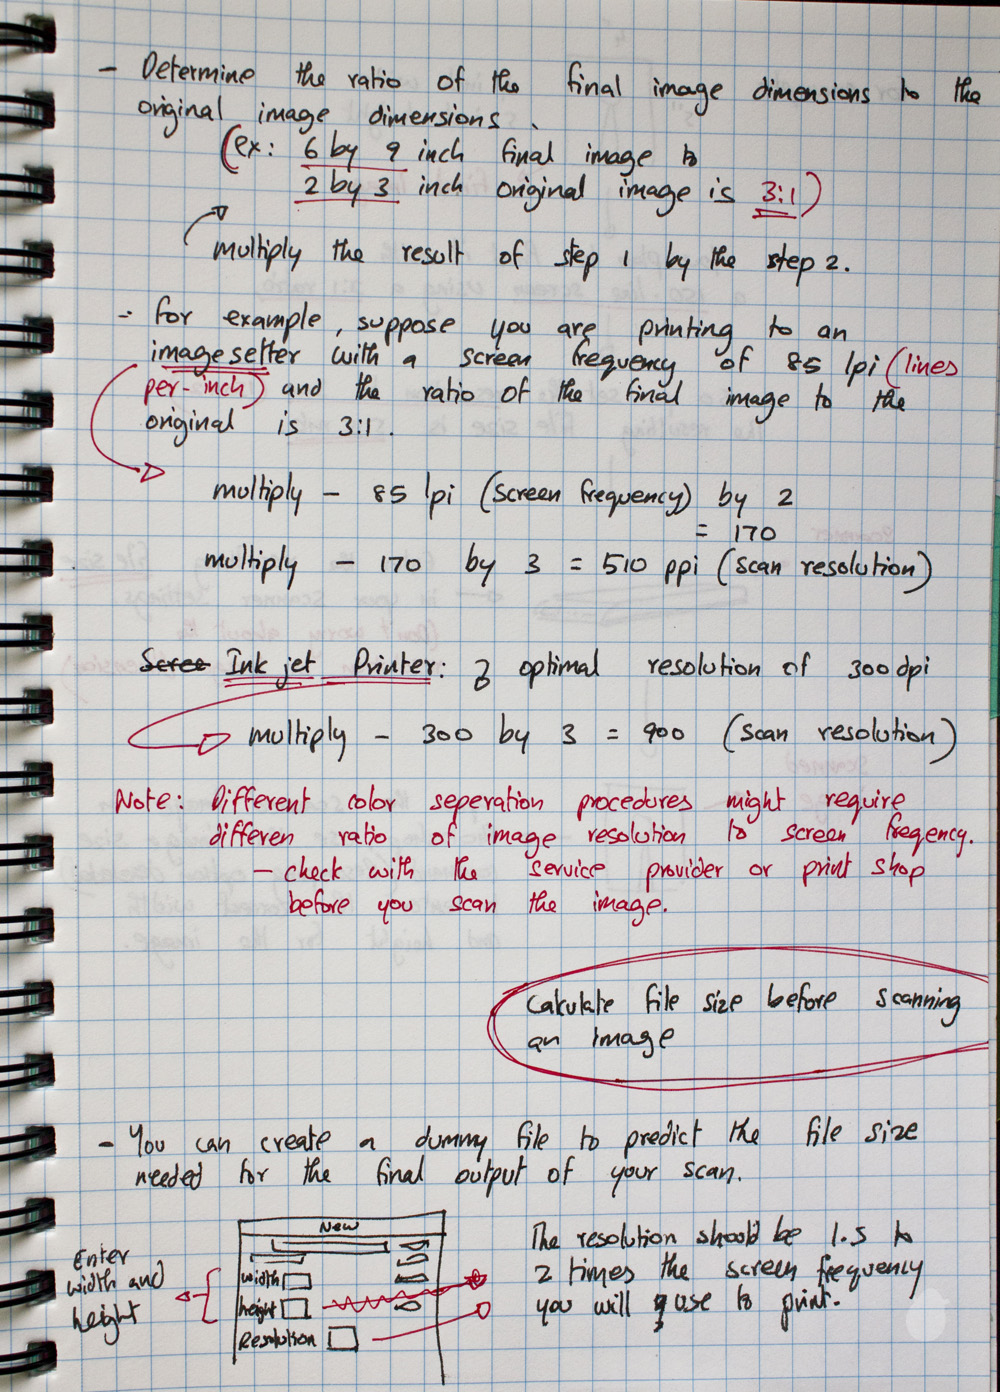 - Determine the ratio of the final image dimensions to the
original image dimensions.
(ex: 6 by 9 inch final image to
2 by 3 inch original image is 3:1)
multiply the result of step 1 by the step 2.
- for example, suppose you are printing to an
imagesetter with a screen frequency of 85 lpi (lines
per-inch) and the ratio of the final image to the
original is 3:1.
multiply - 85 lpi (screen frequency) by 2
= 170
multiply - 170 by 3 = 510 ppi (scan resolution)
Scree Ink jet Printer: optimal resolution of 300 dpi
multiply - 300 by 3 = 900 (scan resolution)
Note: Different color seperation procedures might require
differen ratio of image resolution to screen freqency.
- check with the service provider or print shop
before you scan the image.
Calculate file size before scanning
an image
- You can create a dummy file to predict the file size
needed for the final output of your scan.
Enter
width and
height
New
width
height
Resolution
The resolution should be 1.5 to
2 times the screen frequency
you will use to print.